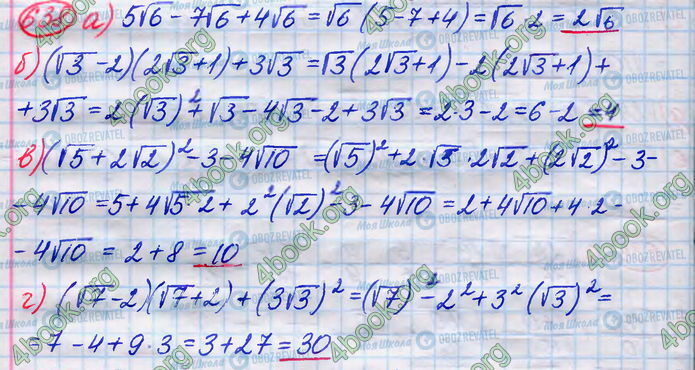 а) 5√6 − 7√6 + 4√6 = √6 (5 − 7 + 4) = √6 · 2 = 2√6
б) (√3 − 2)(2√3 + 1) + 3√3 = √3 (2√3 + 1) − 2(2√3 + 1) +
+ 3√3 = 2(√3)² + √3 − 4√3 − 2 + 3√3 = 2·3 − 2 = 6 − 2 = 4
в) (√5 + 2√2)² − 3 − 4√10 = (√5)² + 2·√5·2√2 + (2√2)² − 3 −
− 4√10 = 5 + 4√5·2 + 2²(√2)² − 3 − 4√10 = 2 + 4√10 + 4·2 −
− 4√10 = 2 + 8 = 10
г) (√7 − 2)(√7 + 2) + (3√3)² = (√7)² − 2² + 3²(√3)² =
= 7 − 4 + 9·3 = 3 + 27 = 30
4book.org
Моя Школа
OBOZREVATEL